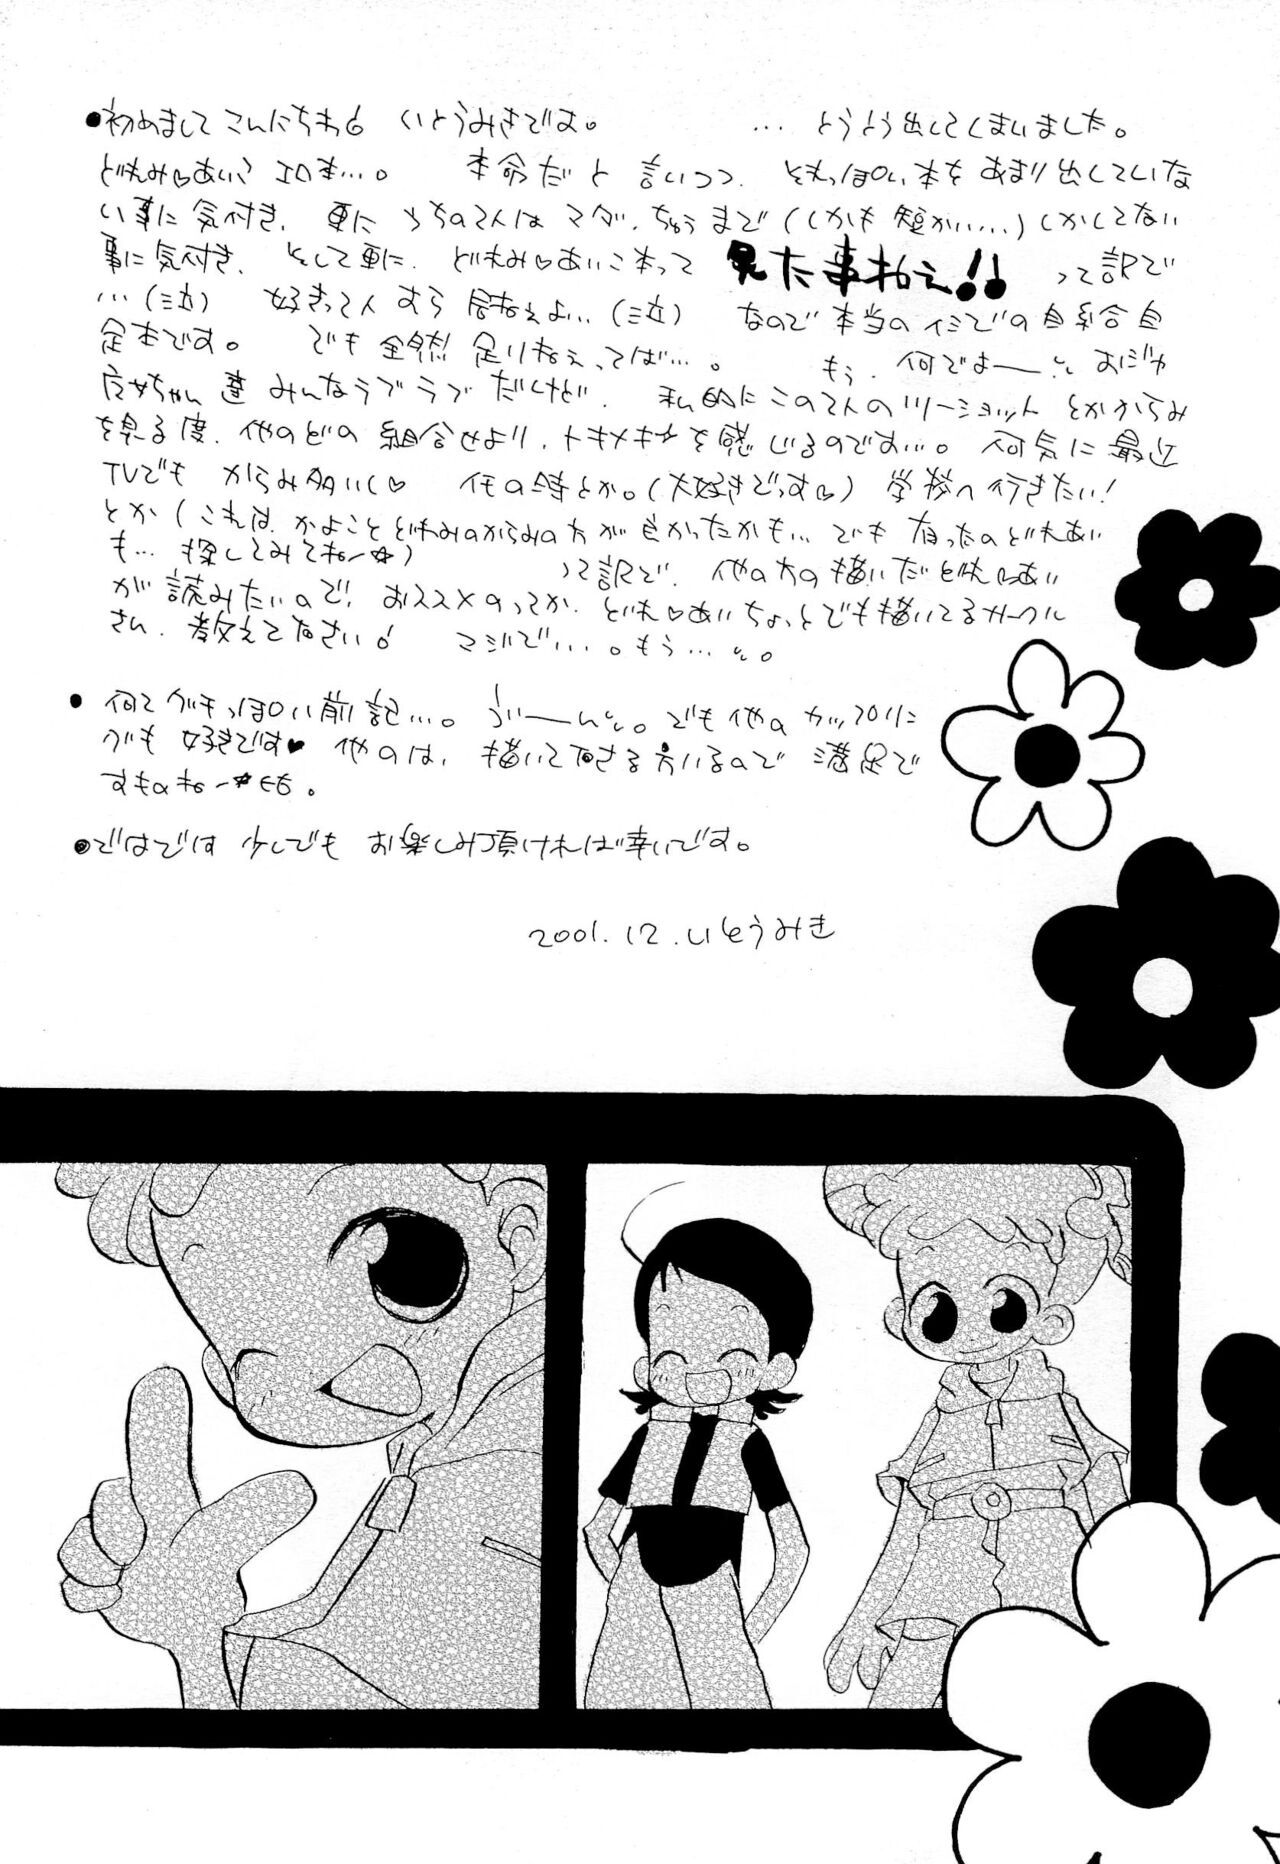 ●初めましてこんにちわ♂ いとうみきです。 …とうとう出してしまいました。
どれみ♡あいこ エロ本…。 本命だと言いつつ、それっぽい本をあまり出していな
い事に気付き、更に うちの2人は マダ、ちゅうまで(しかも短かい…)しかしてない
事に気付き、そして更に、どれみ♡あいこ本って 見た事ねぇ!! って訳で
…(泣) 好きって人すら居ねぇよ…(泣) なので本当のイミでの自給自
足本です。 でも全然足りねぇってば…。 もう、何でよーー おジャ
魔女ちゃん達みんなラブラブだけど、私的にこの2人のツーショットとかからみ
を見る度、他のどの組合せより、トキメキ☆を感じるのです…。何気に最近
TVでもからみ多いし♡ 七夕の時とか。(大好きでっす♡) 学校へ行きたい!
とか(これは、かよことどれみのからみの方が良かったかも… でも有ったのどれあい
も… 探してみてね☆) って訳で、他の方の描いたどれ♡あい
が読みたいので! おススメのってか、どれ♡あいちょっとでも描いてるサークル
さん、教えて下さい! マジで…。もう…。
● 何てグチっぽい前記…。 うぃーん。でも他のカップリン
グも好きです♥ 他のは、描いて下さる方いるので満足で
すものね☆
●ではでは 少しでもお楽しみ頂ければ幸いです。
2001.12.いとうみき